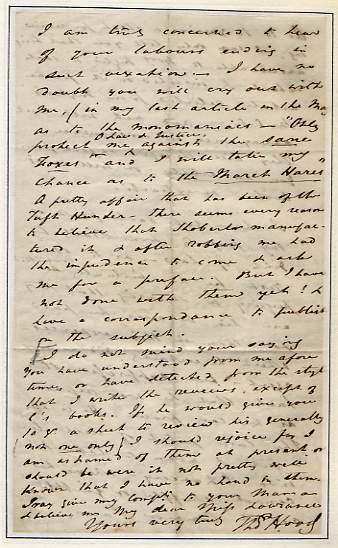 I am truly concerned to hear
of your labours ending in
such vexation — I have no
doubt you will cry out with
me, (in my last article in the Ma
as to the monomaniacs — "Only
protect me against the sane
Foxes" and I will take my
chance as to the March Hares"
A pretty affair that has been of the
Tuft Hunter – there seems every reason
to believe that Shoberl manufac-
tured it & after robbing me had
the impudence to come & ask
me for a preface. But I have
not done with them yet! &
have a correspondence to publish
on the subject.
I do not mind your saying
you have understood from me afore
times or have detected from the style
that I write the reviews, except of
C's books. If he would give you
a sheet to review his generally
not one only) I should rejoice for I
am ashamed of them at present or
should be were it not pretty well
known that I have no hand in them.
Pray give my Compts to your Mama
& believe me My dear Miss Lawrance
Yours very truly Thos Hood